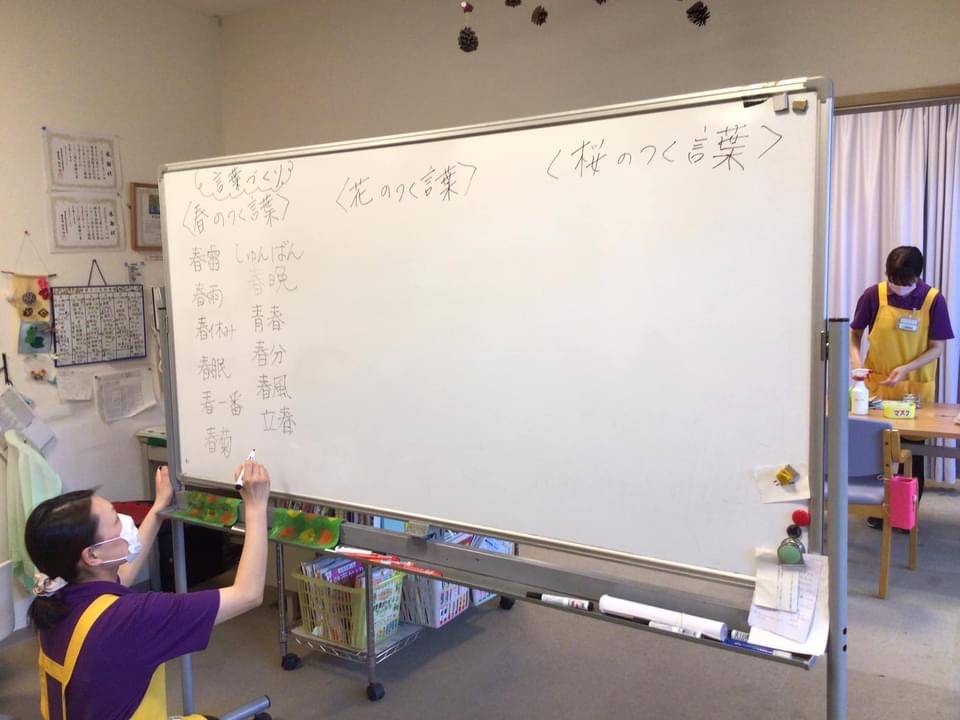 言葉づくり
〈春のつく言葉〉
春雷
春雨
春休み
春眠
春一番
春菊
しゅんばん
春晩
青春
春分
春風
立春
〈花のつく言葉〉
〈桜のつく言葉〉
マスク